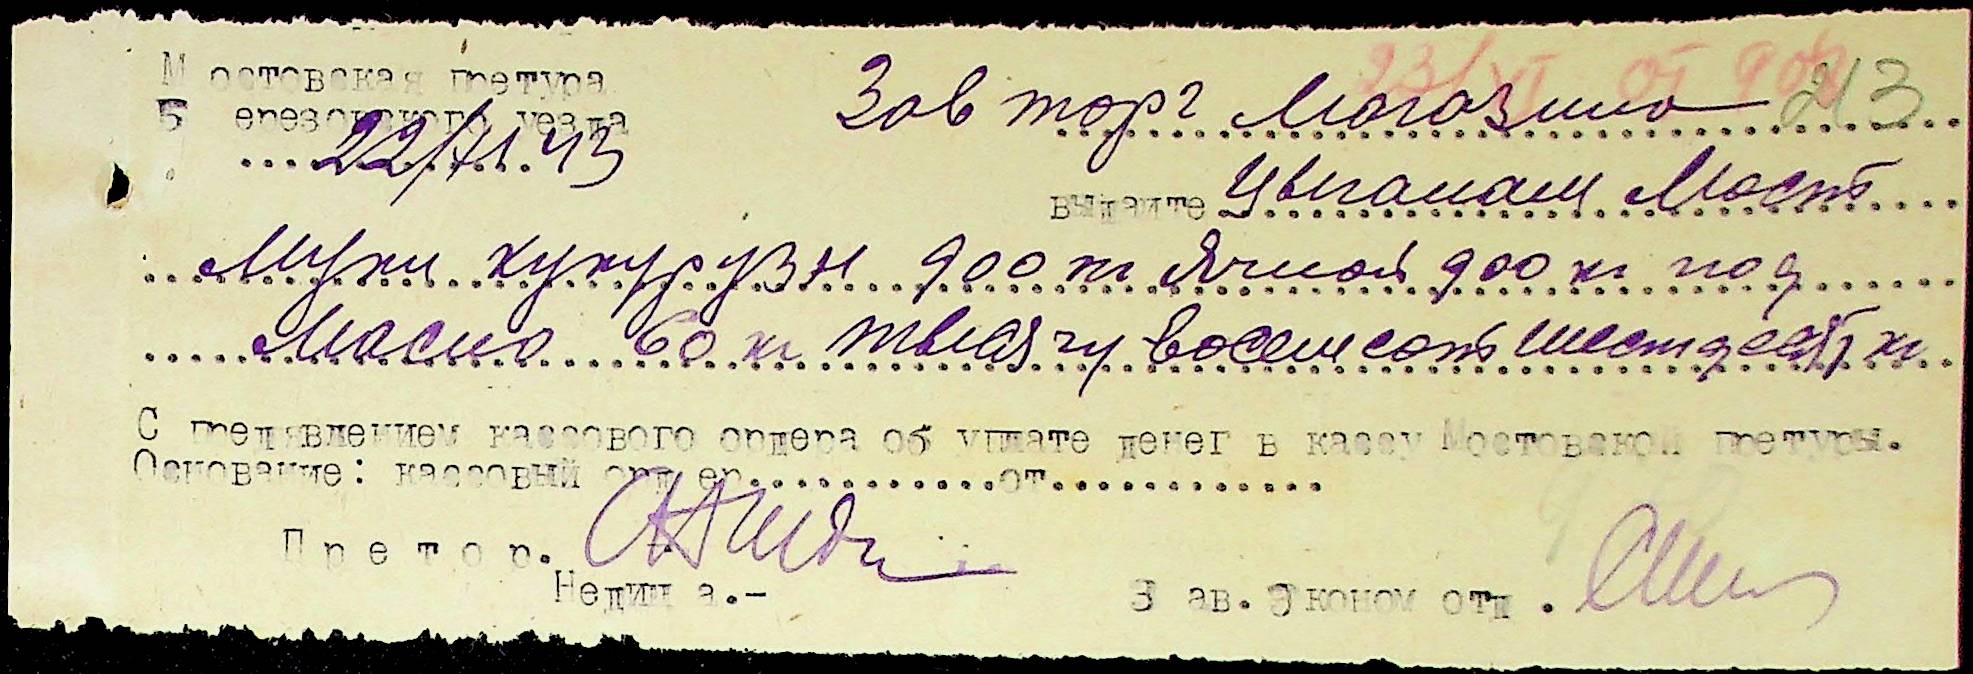 Мостовская претура
23/XI от 908
Березовского уезда
Зав торг Магазина 213
22/XI.43
выдайте Цыганам Мост
Муки кукурузн 900 кг Ячной 900 кг под
Масло 60 кг тысячу восемсот шестдесят кг
С предявлением кассового ордера об уплате денег в кассу Мостовской претуры.
Основание: кассовый ордер.............от..............
Претор.
Недина.-
Зав. Эконом отд.